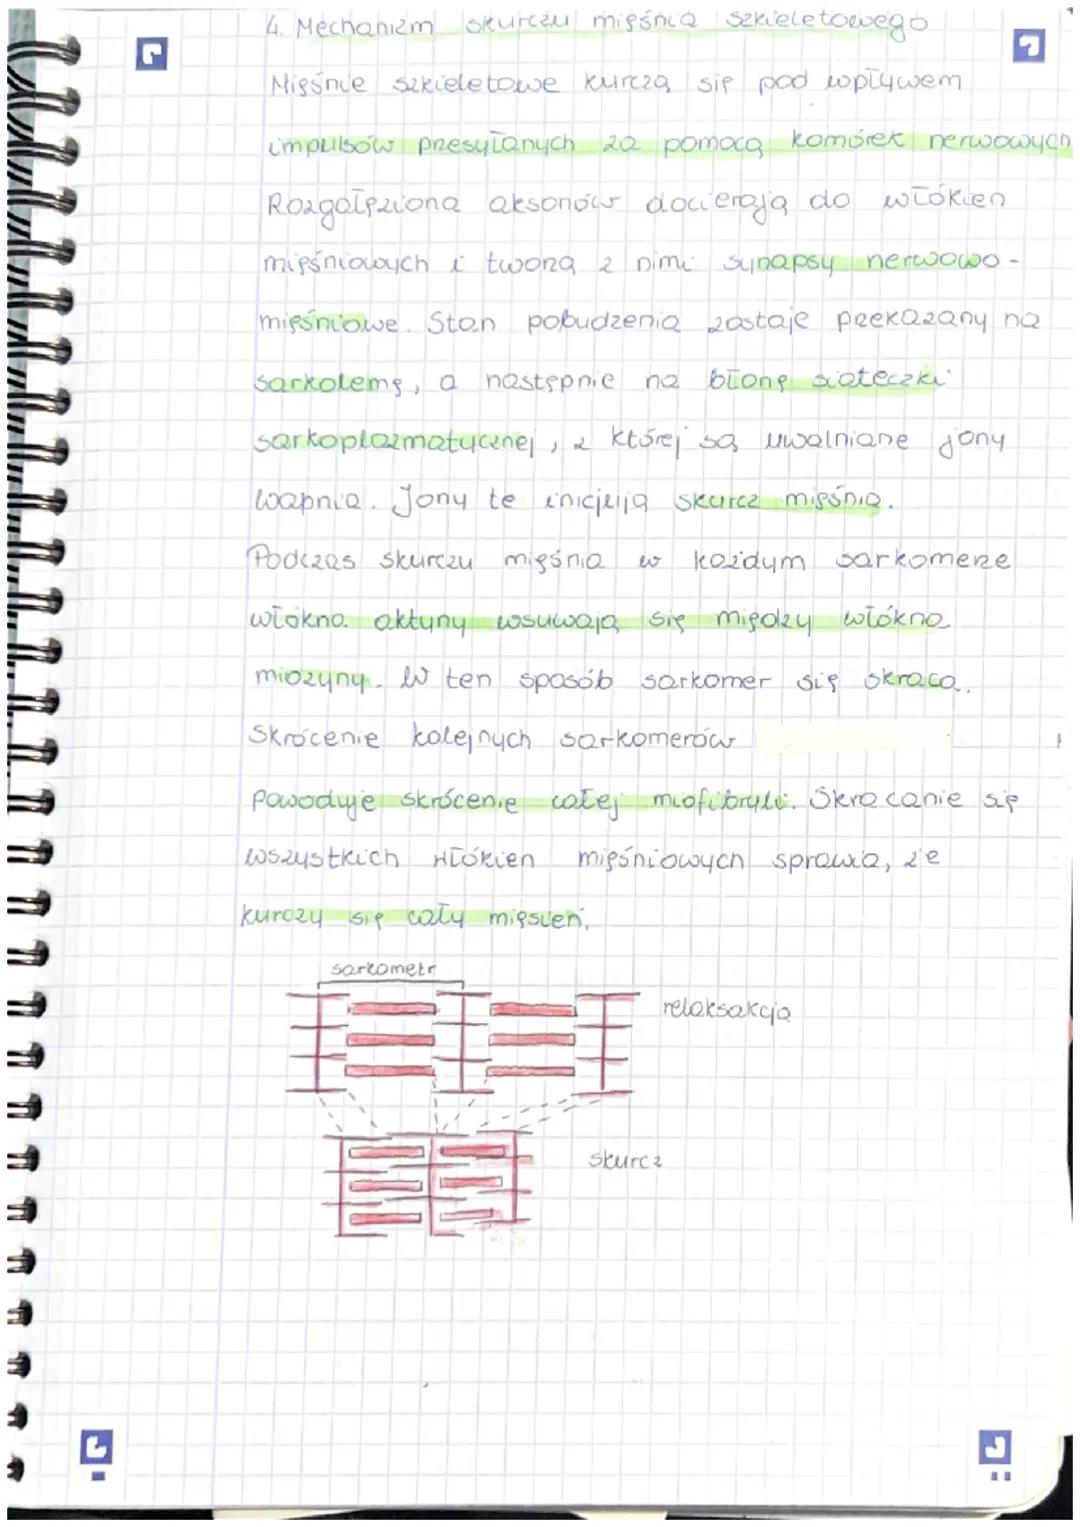 4. Mechanizm skurczu mięśnia szkieletowego
Mięśnie szkieletowe kurczą się pod wpływem
impulsów przesyłanych za pomocą komórek nerwowych
Rozgałęziona aksonów docierają do włókien
mięśniowych i tworzą z nimi synapsy nerwowo-
mięśniowe. Stan pobudzenia zostaje przekazany na
sarkolemę, a następnie na błonę siateczki
sarkoplazmatycznej, z której są uwalniane jony
wapnia. Jony te inicjują skurcz mięśnia.
Podczas skurczu mięśnia w każdym sarkomerze
włókna aktyny wsuwają się między włókna
miozyny. W ten sposób sarkomer się skraca.
Skrócenie kolejnych sarkomerów
powoduje skrócenie całej miofibryli. Skracanie się
wszystkich włókien mięśniowych sprawia, że
kurczy się cały mięsień.
sarkometr
relaksakcja
skurcz